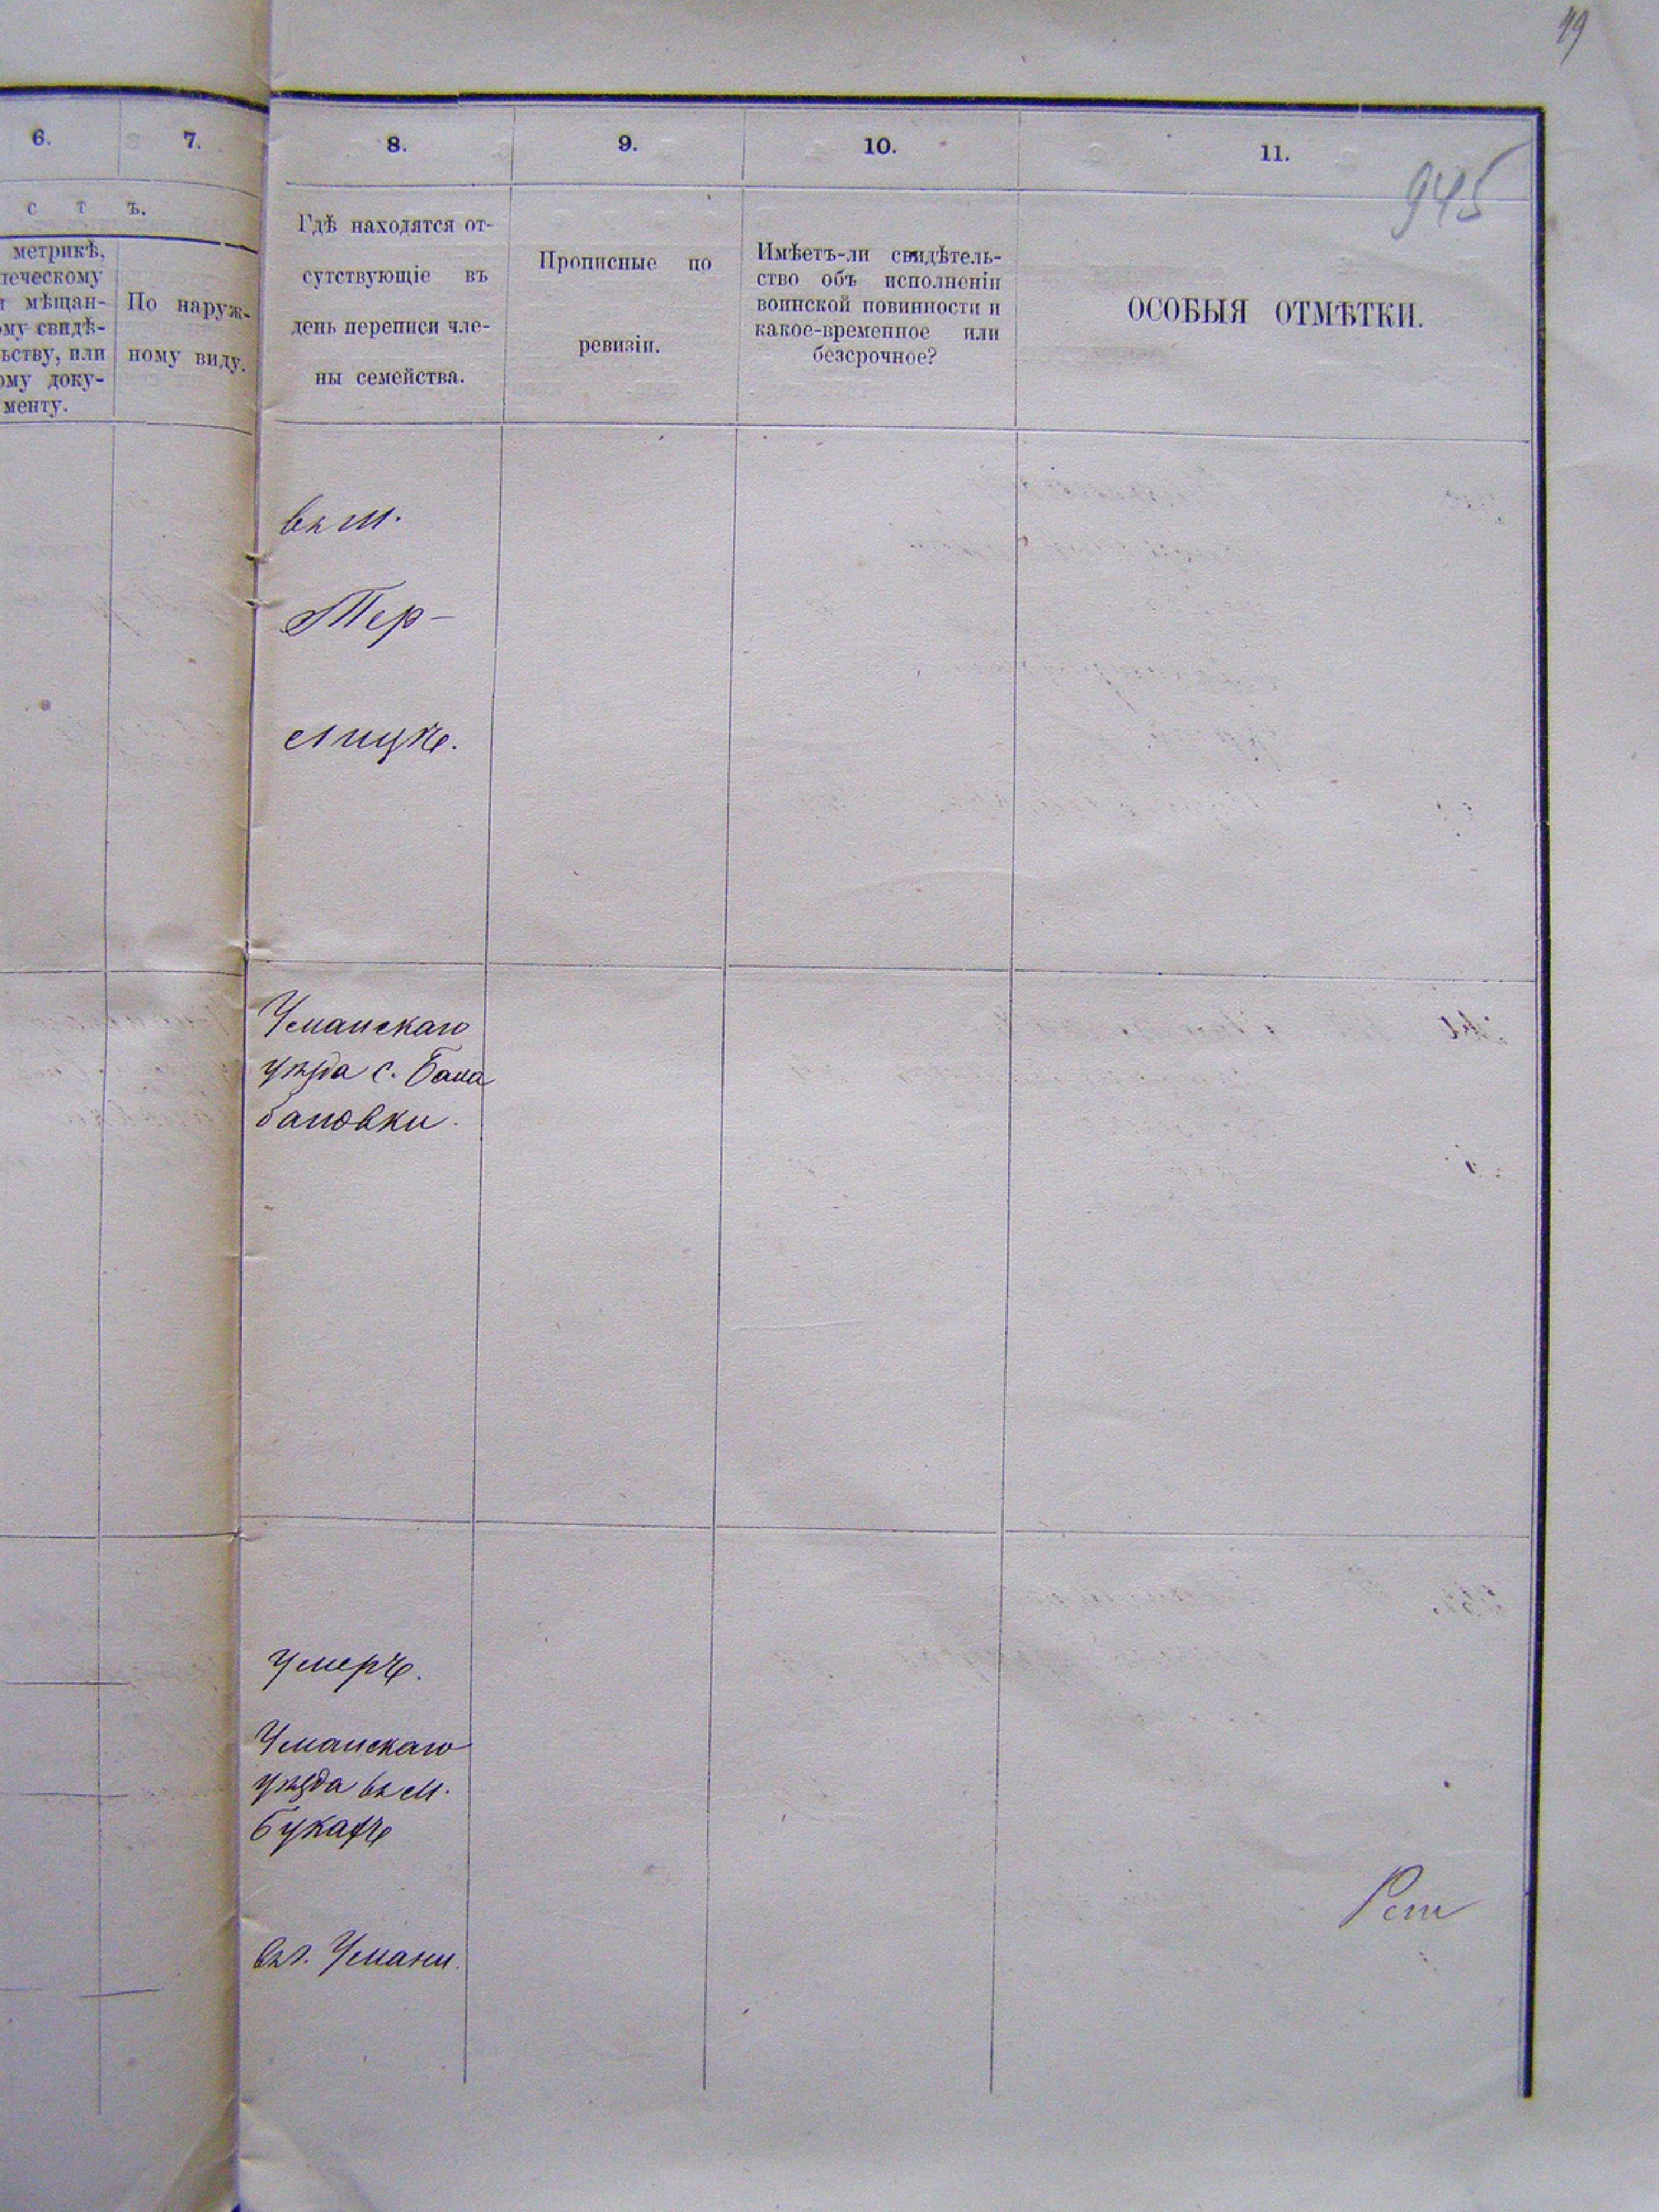 49
6.
7.
8.
9.
10.
11.
945
с т ъ.
метрикѣ,
мѣщан-
свидѣ-
или
доку-
менту.
По наруж-
ному виду.
Гдѣ находятся от-
сутствующіе въ
день переписи чле-
ны семейства.
Прописные по
ревизіи.
Имѣетъ-ли свидѣтель-
ство объ исполненіи
воинской повинности и
какое-временное или
безсрочное?
ОСОБЫЯ ОТМѢТКИ.
въ м.
Тер-
лицѣ.
Уманскаго
уѣзда с. Бала
бановки.
умеръ.
Уманскаго
уѣзда въ м.
въ г. Умани.